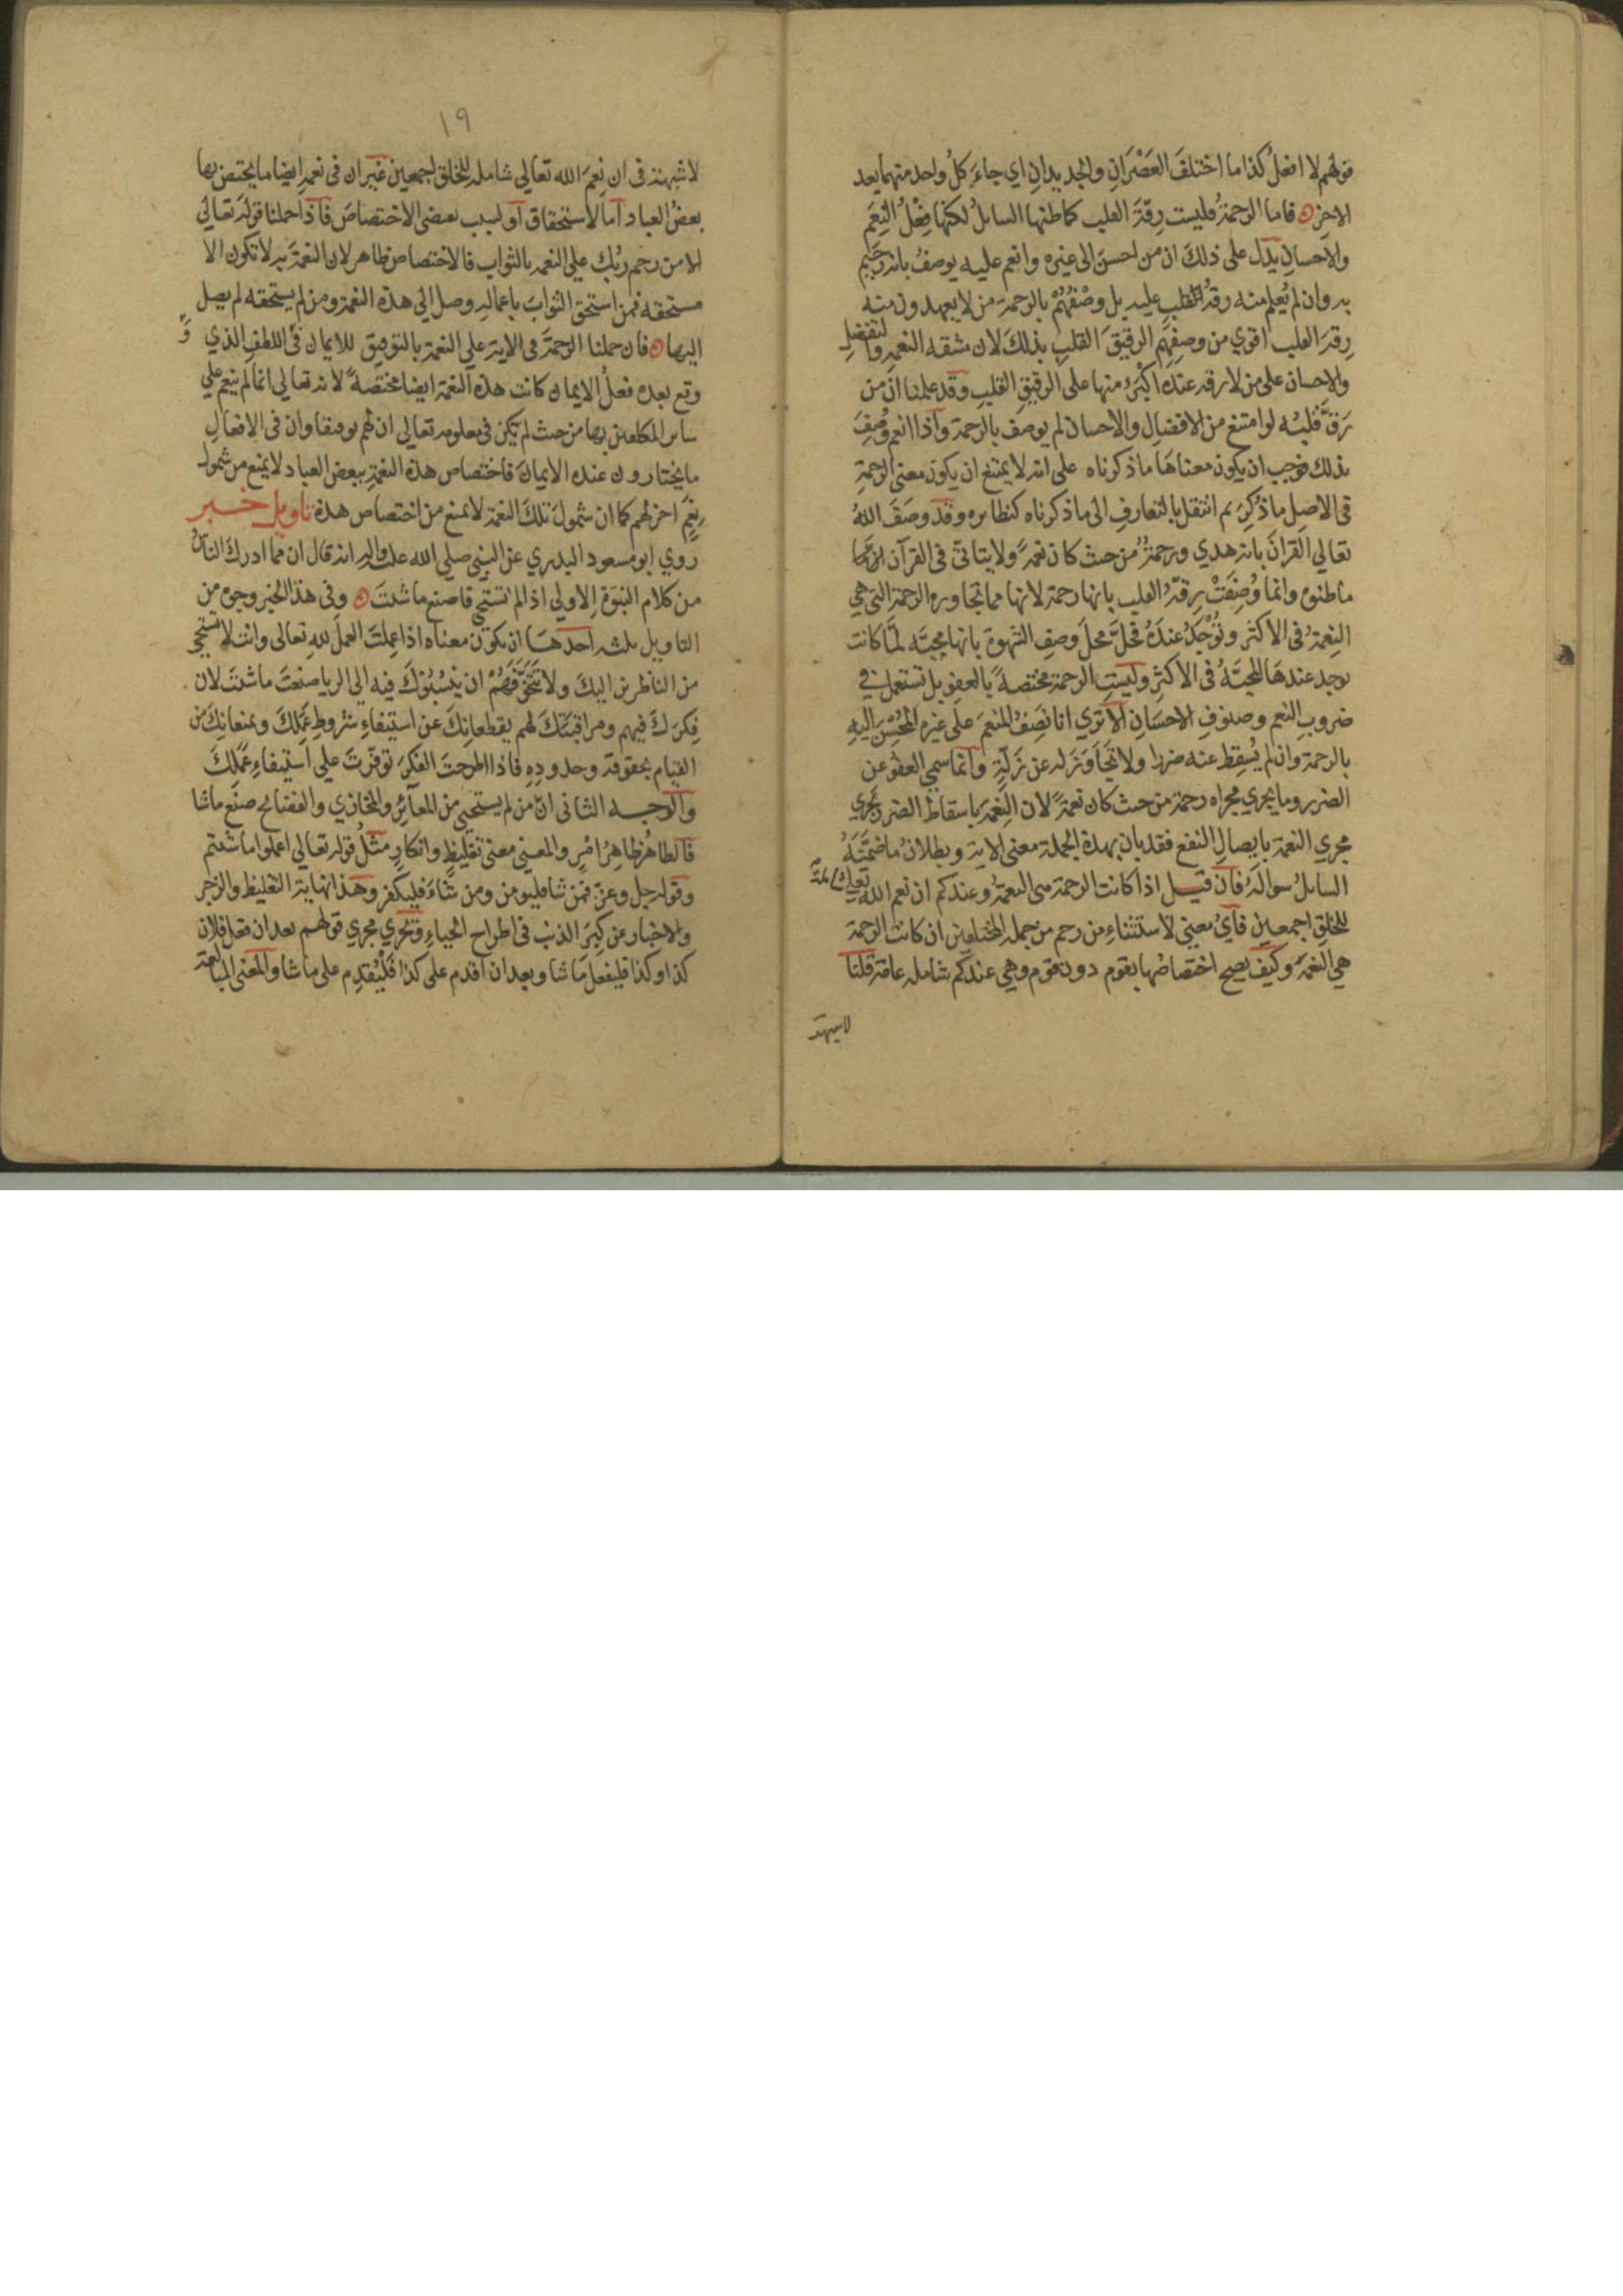 قولهم لا افعلُ كذا ما اختلفَ العَصْرَانِ والجديدانِ اي جاءَ كلُ واحد منهما بعد
الاخر فاما الرحمةُ فليست رِقّةَ القلب كما ظنها السائلُ لكنها فِعْلُ النِعَم
والاحسانِ يدل على ذلكَ ان من احسنَ الى غيره وانعم عليه يوصفُ بانه رَحِيم
به وان لم يُعلم منه رقةُ القلبِ عليه بل وصْفُهُمْ بالرحمة من لا يعهدون منه
رِقةَ القلب اقوي من وصفِهِم الرقيقَ القلبِ بذلكَ لان مشقه النعم والتفضلِ
والاحسان على من لا رقه عنده اكْبَرُ منها على الرقيقِ القلبِ وقد علمنا انّ من
رَقَّ قلبُه لو امتنع من الافضالِ والاحسان لم يوصف بالرحمة واذا انعم وُصِفَ
بذلك فوجب ان يكون معناها ما ذكرناه على انه لا يمتنع ان يكون معنى الرحمةِ
في الاصلِ ما ذُكِرَ ثم انتقل بالتعارفِ الى ما ذكرناه كنظايره وقد وصَفَ اللهُ
تعالي القرانَ بانه هدي ورحمةٌ من حيث كان نعمةً ولا يتاتيّ في القرآن
ما ظنوهُ وانما وُصِفَتْ رِقّةُ القلب بانها رحمة لانها مما تجاوره الرحمة التي هي
النِعمةُ في الاكثر وتُوْجَدُ عندَهُ فحلَّ محلَ وصفِ الشهوةِ بانها محبّه لمّا كانت
توجد عندهَا المحبّةُ في الاكثرِ وليستِ الرحمة مختصةً بالعفوِ بل تستعمل في
ضروبِ النعم وصنوفِ الاحسَانِ الا تري انا نَصِفُ المنعمَ على غيره المحْسِنَ اليهِ
بالرحمة وان لم يُسقِط عنه ضررا ولا تجَاوَزَ له عن زَلّةٍ وانما سمي العفوُ عن
الضرر وما يجري مجراه رحمة من حيث كان نعمةً لان النِعمةَ باسقاط الضرر تجري
مجري النعمة بايصالِ النفع فقد بان بهذة الجملة معنى الاية وبطلانُ ما ضَمَّنَهُ
السائلُ سوالَهُ فان قيل اذا كانت الرحمة هي النعمةُ وعندكم ان نعم الله تعالي شاملة
للخلقِ اجمعينَ فايُ معنيً لاستثناءِ من رحم من جملة المختلفين ان كانت الرحمة
هي النعمةَ وكيف يصح اختصاصُها بقوم دون قوم وهي عندكم شامله عامة قلنا
لا شبهة
١٩
لا شبهة في ان نِعمَ الله تعالي شامله للخلق اجمعين غير ان في نعمهِ ايضا ما يختص بها
بعضُ العباد امّا لاستحقاق او لسبب يقتضي الاختصاصَ فاذا حملنا قولَه تعالي
الا من رحم ربُك علي النعمه بالثواب فالاختصاص ظاهر لان النعمةَ به لا تكون الا
مستحقه فمن استحق الثوابَ باعمالهِ وصل الي هذه النعمة ومن لم يستحقه لم يصل
اليها فان حملنا الرحمةَ في الاية علي النعمة بالتوفيق للايمان في اللطف الذي
وقع بعده فعلُ الايمان كانت هذه النعمة ايضا مختصةً لانه تعالي انما لم ينعم علي
ساير المكلفين بها من حيث لم يكن في معلومه تعالي ان لهم توفيقا وان في الافعالِ
ما يختارون عنده الايمانَ فاختصاص هذه النعمةِ ببعض العباد لا يمنع من شمول
نِعَمٍ اخر لهم كما ان شمولَ تلكَ النعمة لا يمنع من اختصاص هذه تاويل خبر
روي ابو مسعود البدري عن النبي صلي الله عليه واله انه قال ان مما ادركَ الناسُ
من كلام النبوةِ الاولي اذا لم تستحي فاصنع ما شئتَ وفي هذا الخبر وجوهٌ من
التاويل ثلثه احدهَا ان يكون معناه اذا عمِلتَ العملَ للهِ تعالى وانت لا تستحي
من الناظرين اليكَ ولا تتخوّفهُمْ ان ينسُبُوكَ فيه الي الريا صنعتَ ما شئتَ لان
فِكرَكَ فيهم ومراقبَتَكَ لهم يقطعانِكَ عن استيفاءِ شروطِ عَمَلِكَ ويمنعانِكَ من
القيام بحقوقه وحدودِهِ فاذا اطرحتَ الفكرَ توفّرتَ علي استيفاءِ عَمَلكَ
والوجه الثاني انّ من لم يستحيي من المعآئِرِ والمخازي والفضائح صنَع ما شا
فالظاهرُ ظاهِرُ امْرٍ والمعنى معنى تغليظٍ وانكارِ مثلُ قوله تعالي اعملوا ما شئتم
وقوله جل وعزّ فمن شا فليومن ومن شآءَ فليكفر وهذا نهاية التغليظ والزجر
والاخبار عن كِبَرِ الذنب في اطراح الحياءِ وتجري مجري قولهم بعد ان فعل فلان
كذا وكذا فليفعل ما شا وبعد ان اقدم على كذا فَلْيُقدِم على ما شا والمعنى المبالغة